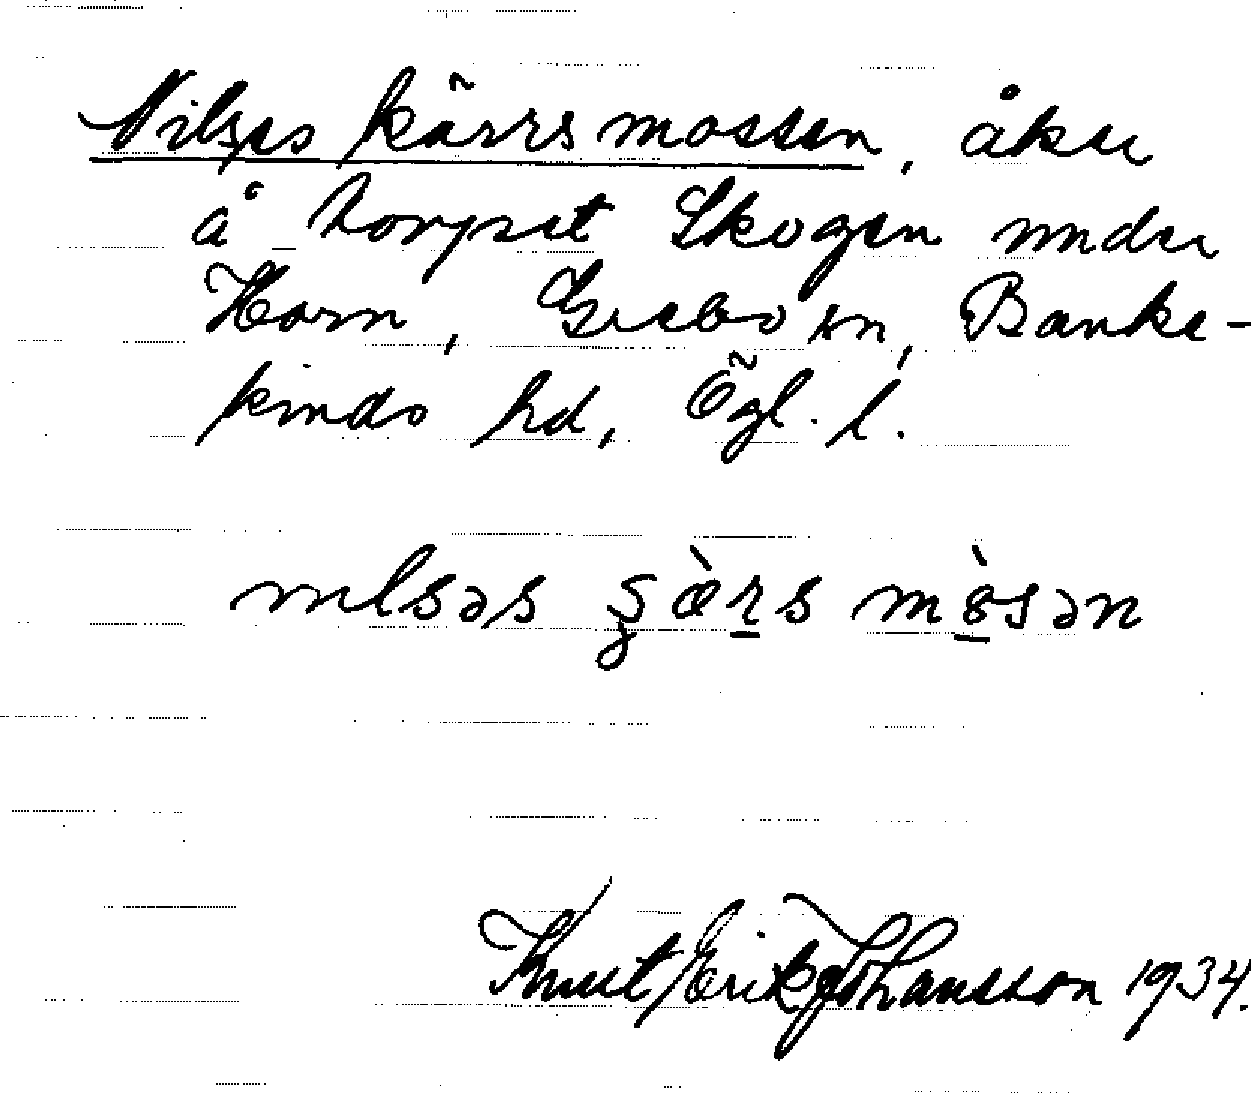 Nilses kärrsmossen, åker
å torpet Skogen under
Horn, Grebo sn, Banke-
kinds hd, Ögl. l.
nilsəs
Knut Erik Johansson 1934.